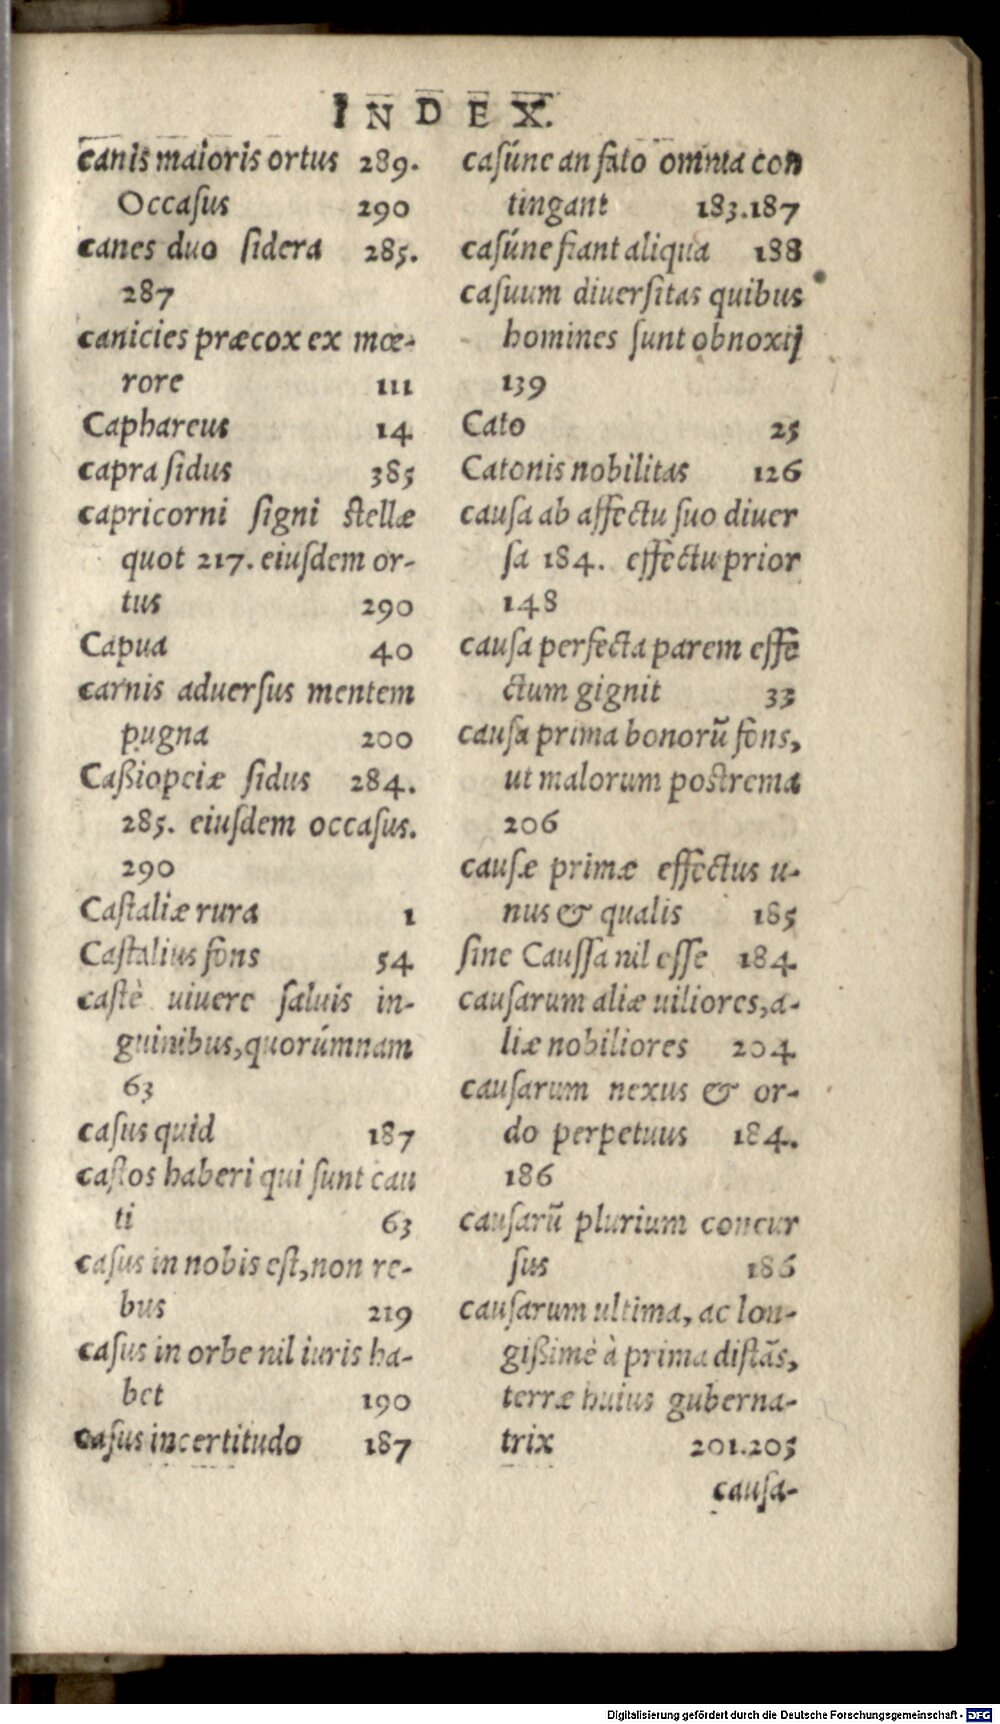 INDEX.
canis maioris ortus 289.
Occaſus 290
canes duo ſidera 285.
287
canicies præcox ex mœ-
rore 111
Caphareus 14
capra ſidus 385
capricorni ſigni ſtellæ
quot 217. eiuſdem or-
tus 290
Capua 40
carnis aduerſus mentem
pugna 200
Caßiopeiæ ſidus 284.
285. eiuſdem occaſus.
290
Caſtaliæ rura 1
Caſtalius fons 54
caſtè uiuere ſaluis in-
guinibus, quorúmnam
63
caſus quid 187
caſtos haberi qui ſunt cau
ti 63
caſus in nobis eſt, non re-
bus 219
caſus in orbe nil iuris ha-
bet 190
caſus incertitudo 187
caſúne an fato omnia con
tingant 183.187
caſúne fiant aliqua 188
caſuum diuerſitas quibus
homines ſunt obnoxij
139
Cato 25
Catonis nobilitas 126
cauſa ab affectu ſuo diuer
ſa 184. effectu prior
148
cauſa perfecta parem effe
ctum gignit 33
cauſa prima bonorũ fons,
ut malorum poſtrema
206
cauſæ primæ effectus u-
nus & qualis 185
ſine Cauſſa nil eſſe 184.
cauſarum aliæ uiliores, a-
liæ nobiliores 204.
cauſarum nexus & or-
do perpetuus 184.
186
cauſarũ plurium concur
ſus 186
cauſarum ultima, ac lon-
gißimè à prima diſtãs,
terræ huius guberna-
trix 201.205
cauſa-
Digitalisierung gefördert durch die Deutsche Forschungsgemeinschaft - DFG